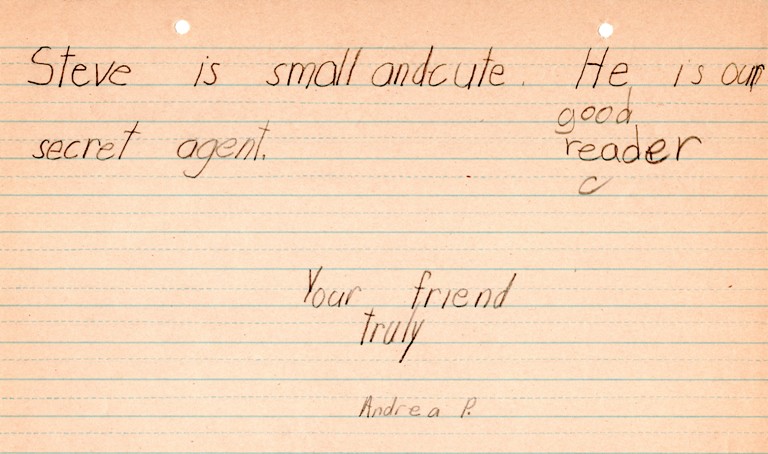 Steve is small andcute. He is our
good
secret agent. reader
c
Your friend
truly
Andrea P.